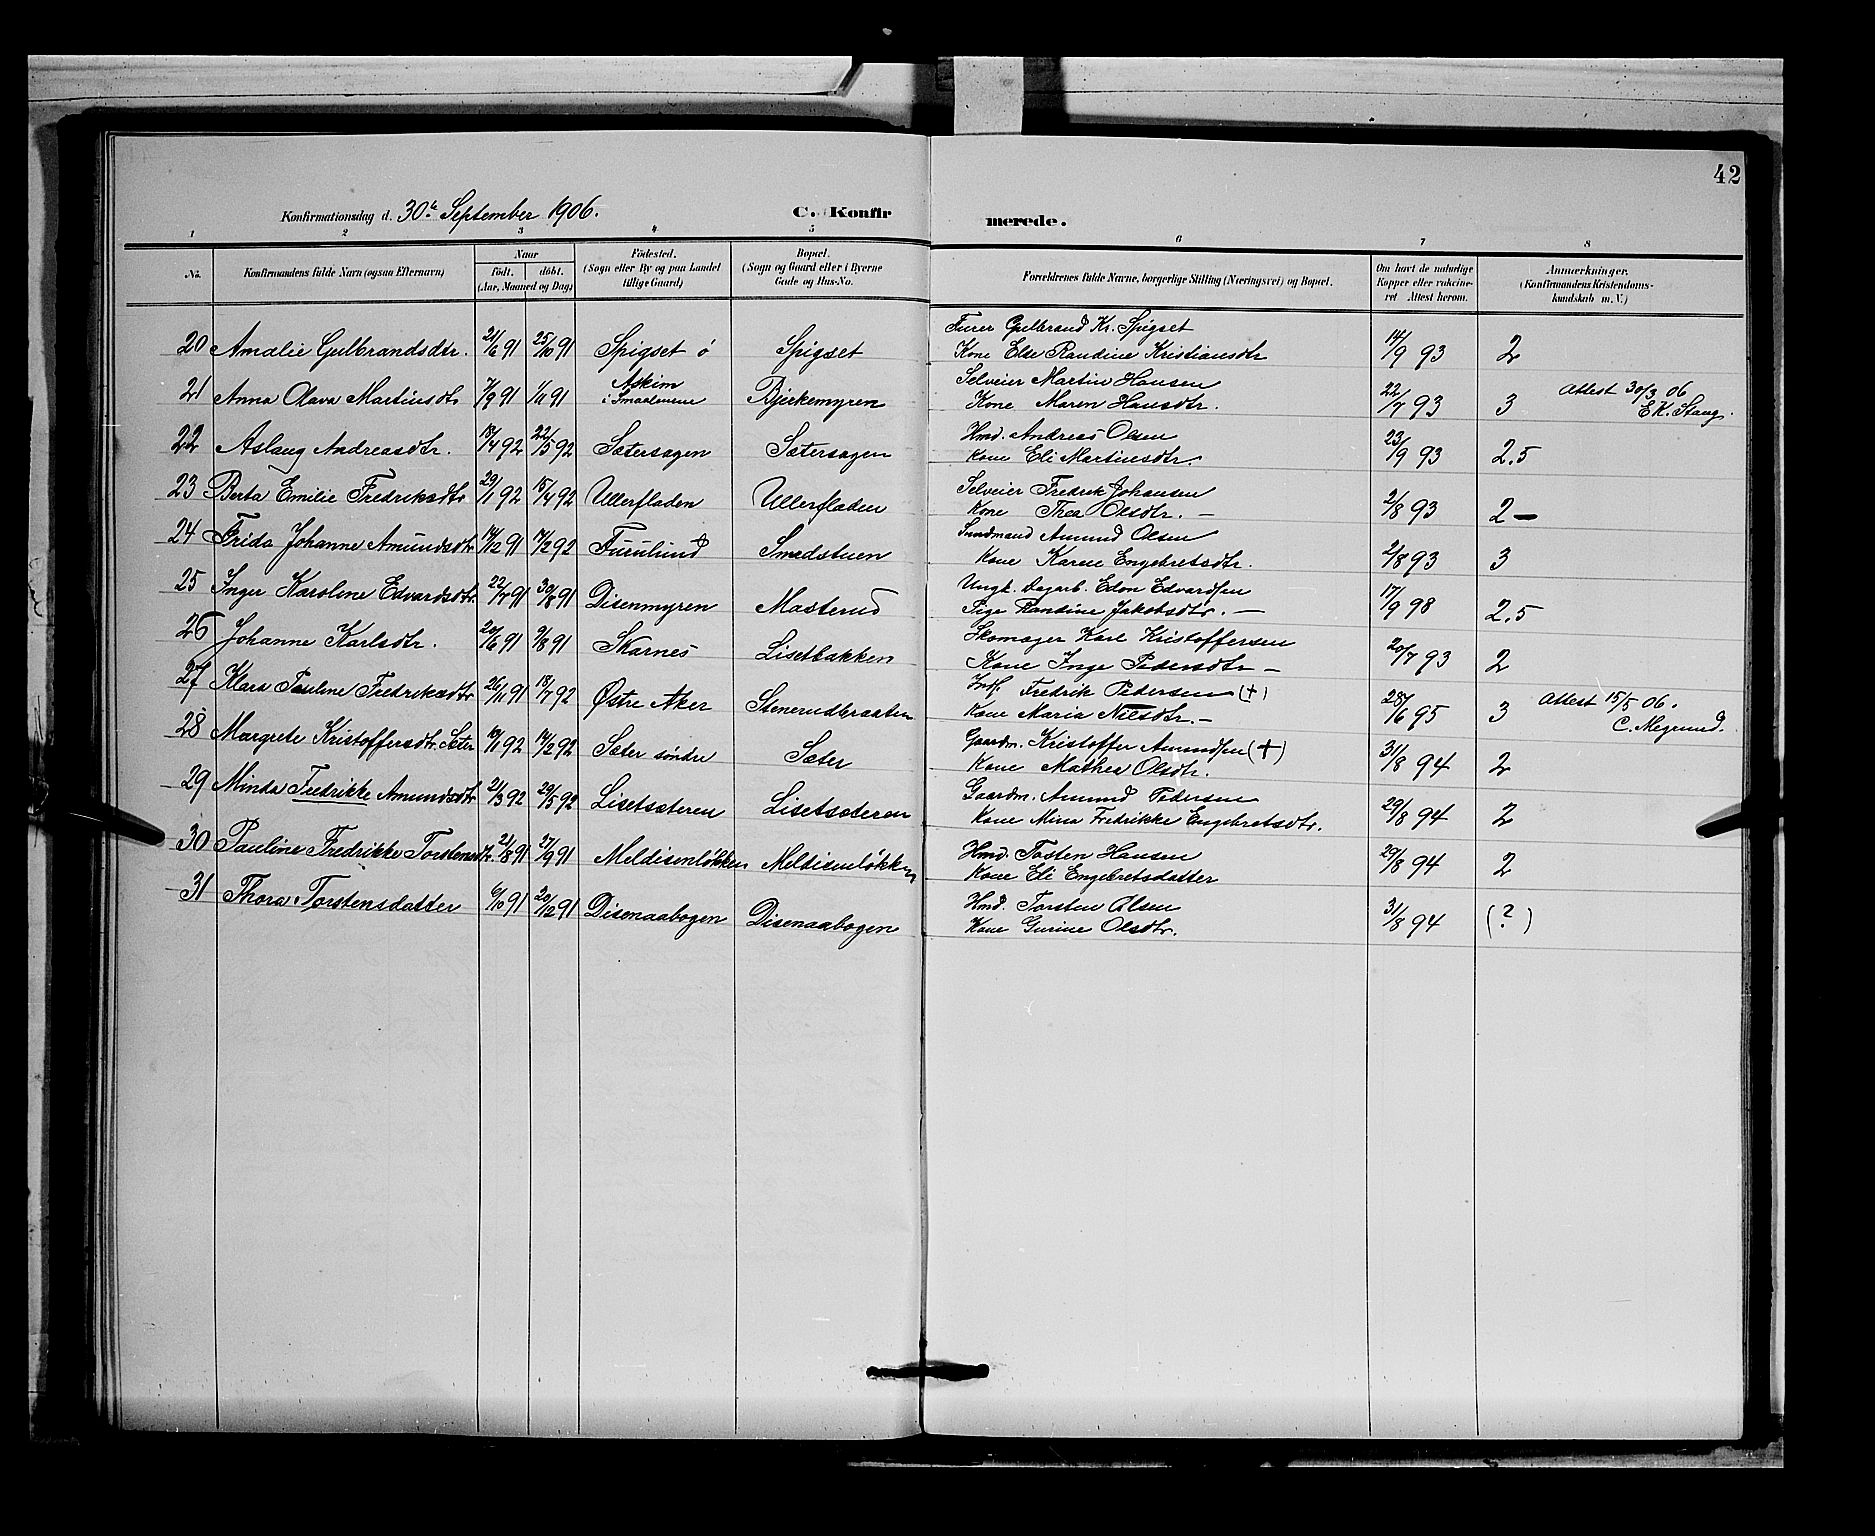 42
Konfirmationsdag d. 30te September 1906. C. Konfir merede.
1 2 3 4 5 6 7 8
No. Konfirmandens fulde Navn (ogsaa Efternavn) Naar födt. döbt. (Aar, Maaned og Dag) Födested. (Sogn eller By og paa Landet tillige Gaard) Bopæl. (Sogn og Gaard eller i Byerne Gade og Hus-No. Forældrenes fulde Navne, borgerlige Stilling (Næringsvei) og Bopæl. Om havt de naturlige Kopper eller vakcineret Attest herom. Anmærkninger. (Konfirmandens Kristendomskundskab m. V.)
Furer Gulbrand Kr. Spigset
20 Amalie Gulbrandsdtr. 21/6 91 25/10 91 Spigset ö Spigset Kone Else Randine Kristiansdtr 14/9 93 2
Selveier Martin Hansen
21 Anna Olava Martinsdtr 7/9 91 1/11 91 Askim i Smaalenene Bjerkemyren Kone Maren Hansdtr. 22/7 93 3 Attest 30/3 06 E. K. Stang.
Hmd. Andreas Olsen
22 Aslaug Andreasdtr. 18/4 92 22/5 92 Sætersagen Sætersagen Kone Eli Martinsdtr. 23/9 93 2.5
Selveier Fredrik Johansen
23 Berta Emilie Fredriksdtr 29/1 92 15/4 92 Ullerfladen Ullerfladen Kone Thea Olsdtr. — 2/8 93 2 —
Amund Olsen
24 Frida Johanne Amundsdtr 14/12 91 14/2 92 Furulund Smedstuen Kone Karen Engebretsdtr. 2/8 93 3
Ungk. Dagarb. Edvardsen
25 Inger Karoline Edvardsdtr. 22/7 91 30/8 91 Disenmyren Masterud Pige Randine Jakobsdtr. — 17/9 98 2.5
Skomager Karl Kristoffersen
26 Johanne Karlsdtr. 20/6 91 9/8 91 Skarnes Lisetbakken Kone Inge Pedersdtr — 20/7 93 2
Fredrik Pedersen (+)
27 Klara Pauline Fredriksdtr 26/11 91 18/7 92 Østre Aker Stenerudbraaten Kone Maria Nilsdtr. — 28/6 95 3 Attest 15/5 06. C. Megrund.
Gaardm. Kristoffer Amundsen (+)
28 Margrete Kristoffersdtr. Sæter 10/1 92 14/2 92 Sæter söndre Sæter Kone Mathea Olsdtr. 31/8 94 2
Gaardm. Amund Pedersen
29 Minda Fredrikke Amundsdtr 21/3 92 29/5 92 Lisetsæteren Lisetsæteren Kone Mina Fredrikke Engebretsdtr. 29/8 94 2
Hmd. Tosten Hansen
30 Pauline Fredrikke Torstensdtr. 2/8 91 27/9 91 Meldisenløkken Meldisenløkken Kone Eli Engebretsdatter 29/8 94 2
Hmd. Torsten Olsen
31 Thora Torstensdatter 6/10 91 20/12 91 Disenaabogen Disenaabogen Kone Gurine Olsdtr. 31/8 94 (?)